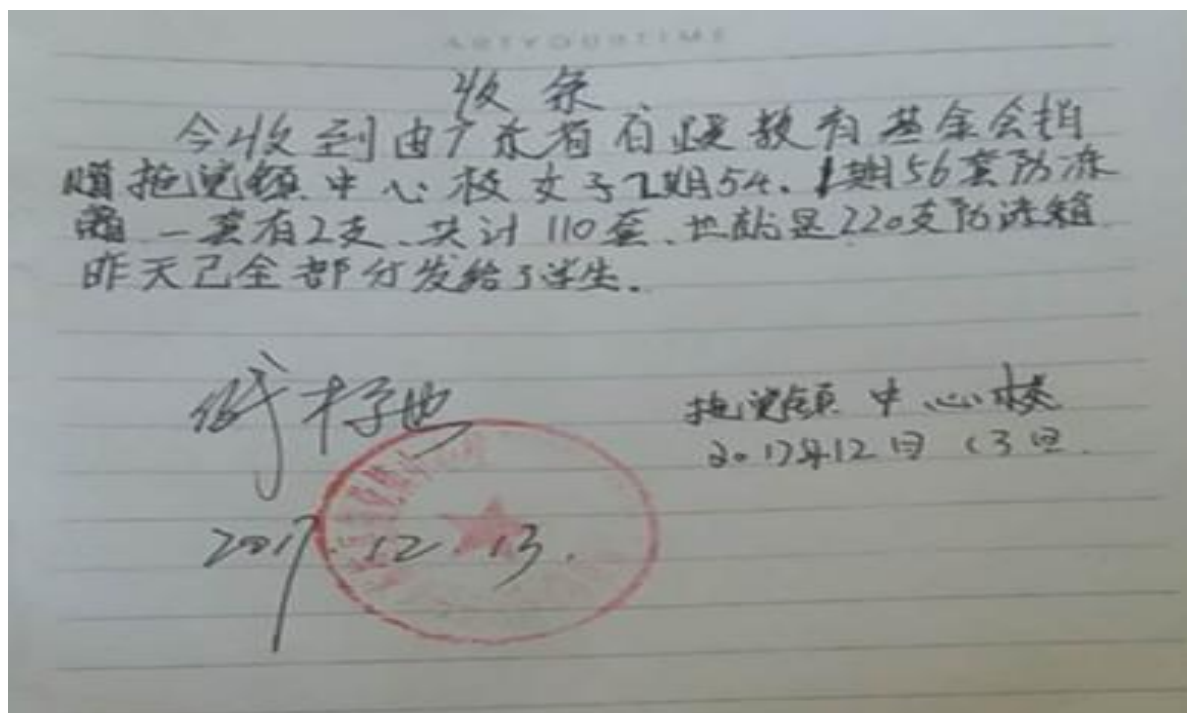 ARTYOURTIME
收条
今收到由广东省百暖教育基金会捐
赠拖觉镇中心校女子2期54、1期56套防冻
霜一套有2支、共计110套、也就是220支防冻霜
昨天已全部分发给了学生。
拖觉镇中心校
2017年12月13日.
2017.12.13.